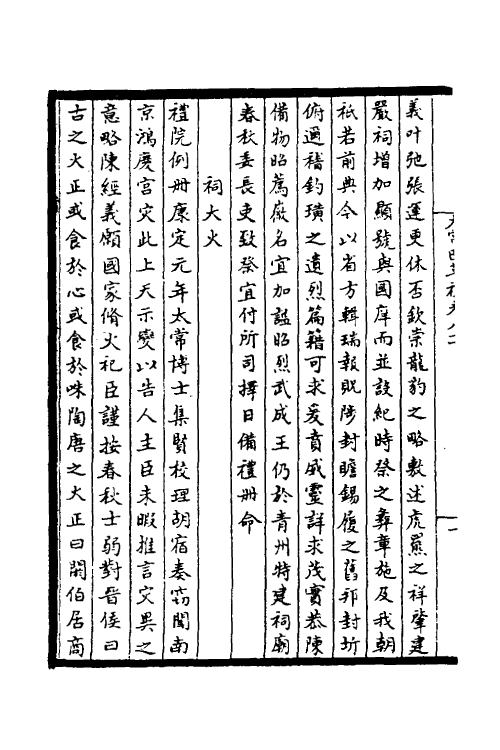 義叶弛張運更休否欽崇龍豹之略敷述虎羆之祥肇建
嚴祠增加顯號與國庠而並設紀時祭之彝章施及我朝
祇若前典今以省方輯瑞報貺陟封瞻錫履之舊邦封圻
俯過稽釣璜之遺烈篇籍可求爰賁威靈詳求茂實恭陳
備物昭薦厥名宜加諡昭烈武成王仍於青州特建祠廟
春秋委長吏致祭宜付所司擇日備禮冊命
祠大火
禮院例冊康定元年太常博士集賢校理胡宿奏竊聞南
京鴻慶宮灾此上天示變以告人主臣未暇推言灾異之
意略陳經義願國家脩火祀臣謹按春秋士弱對晉侯曰
古之火正或食於心或食於咮陶唐之火正曰閼伯居商